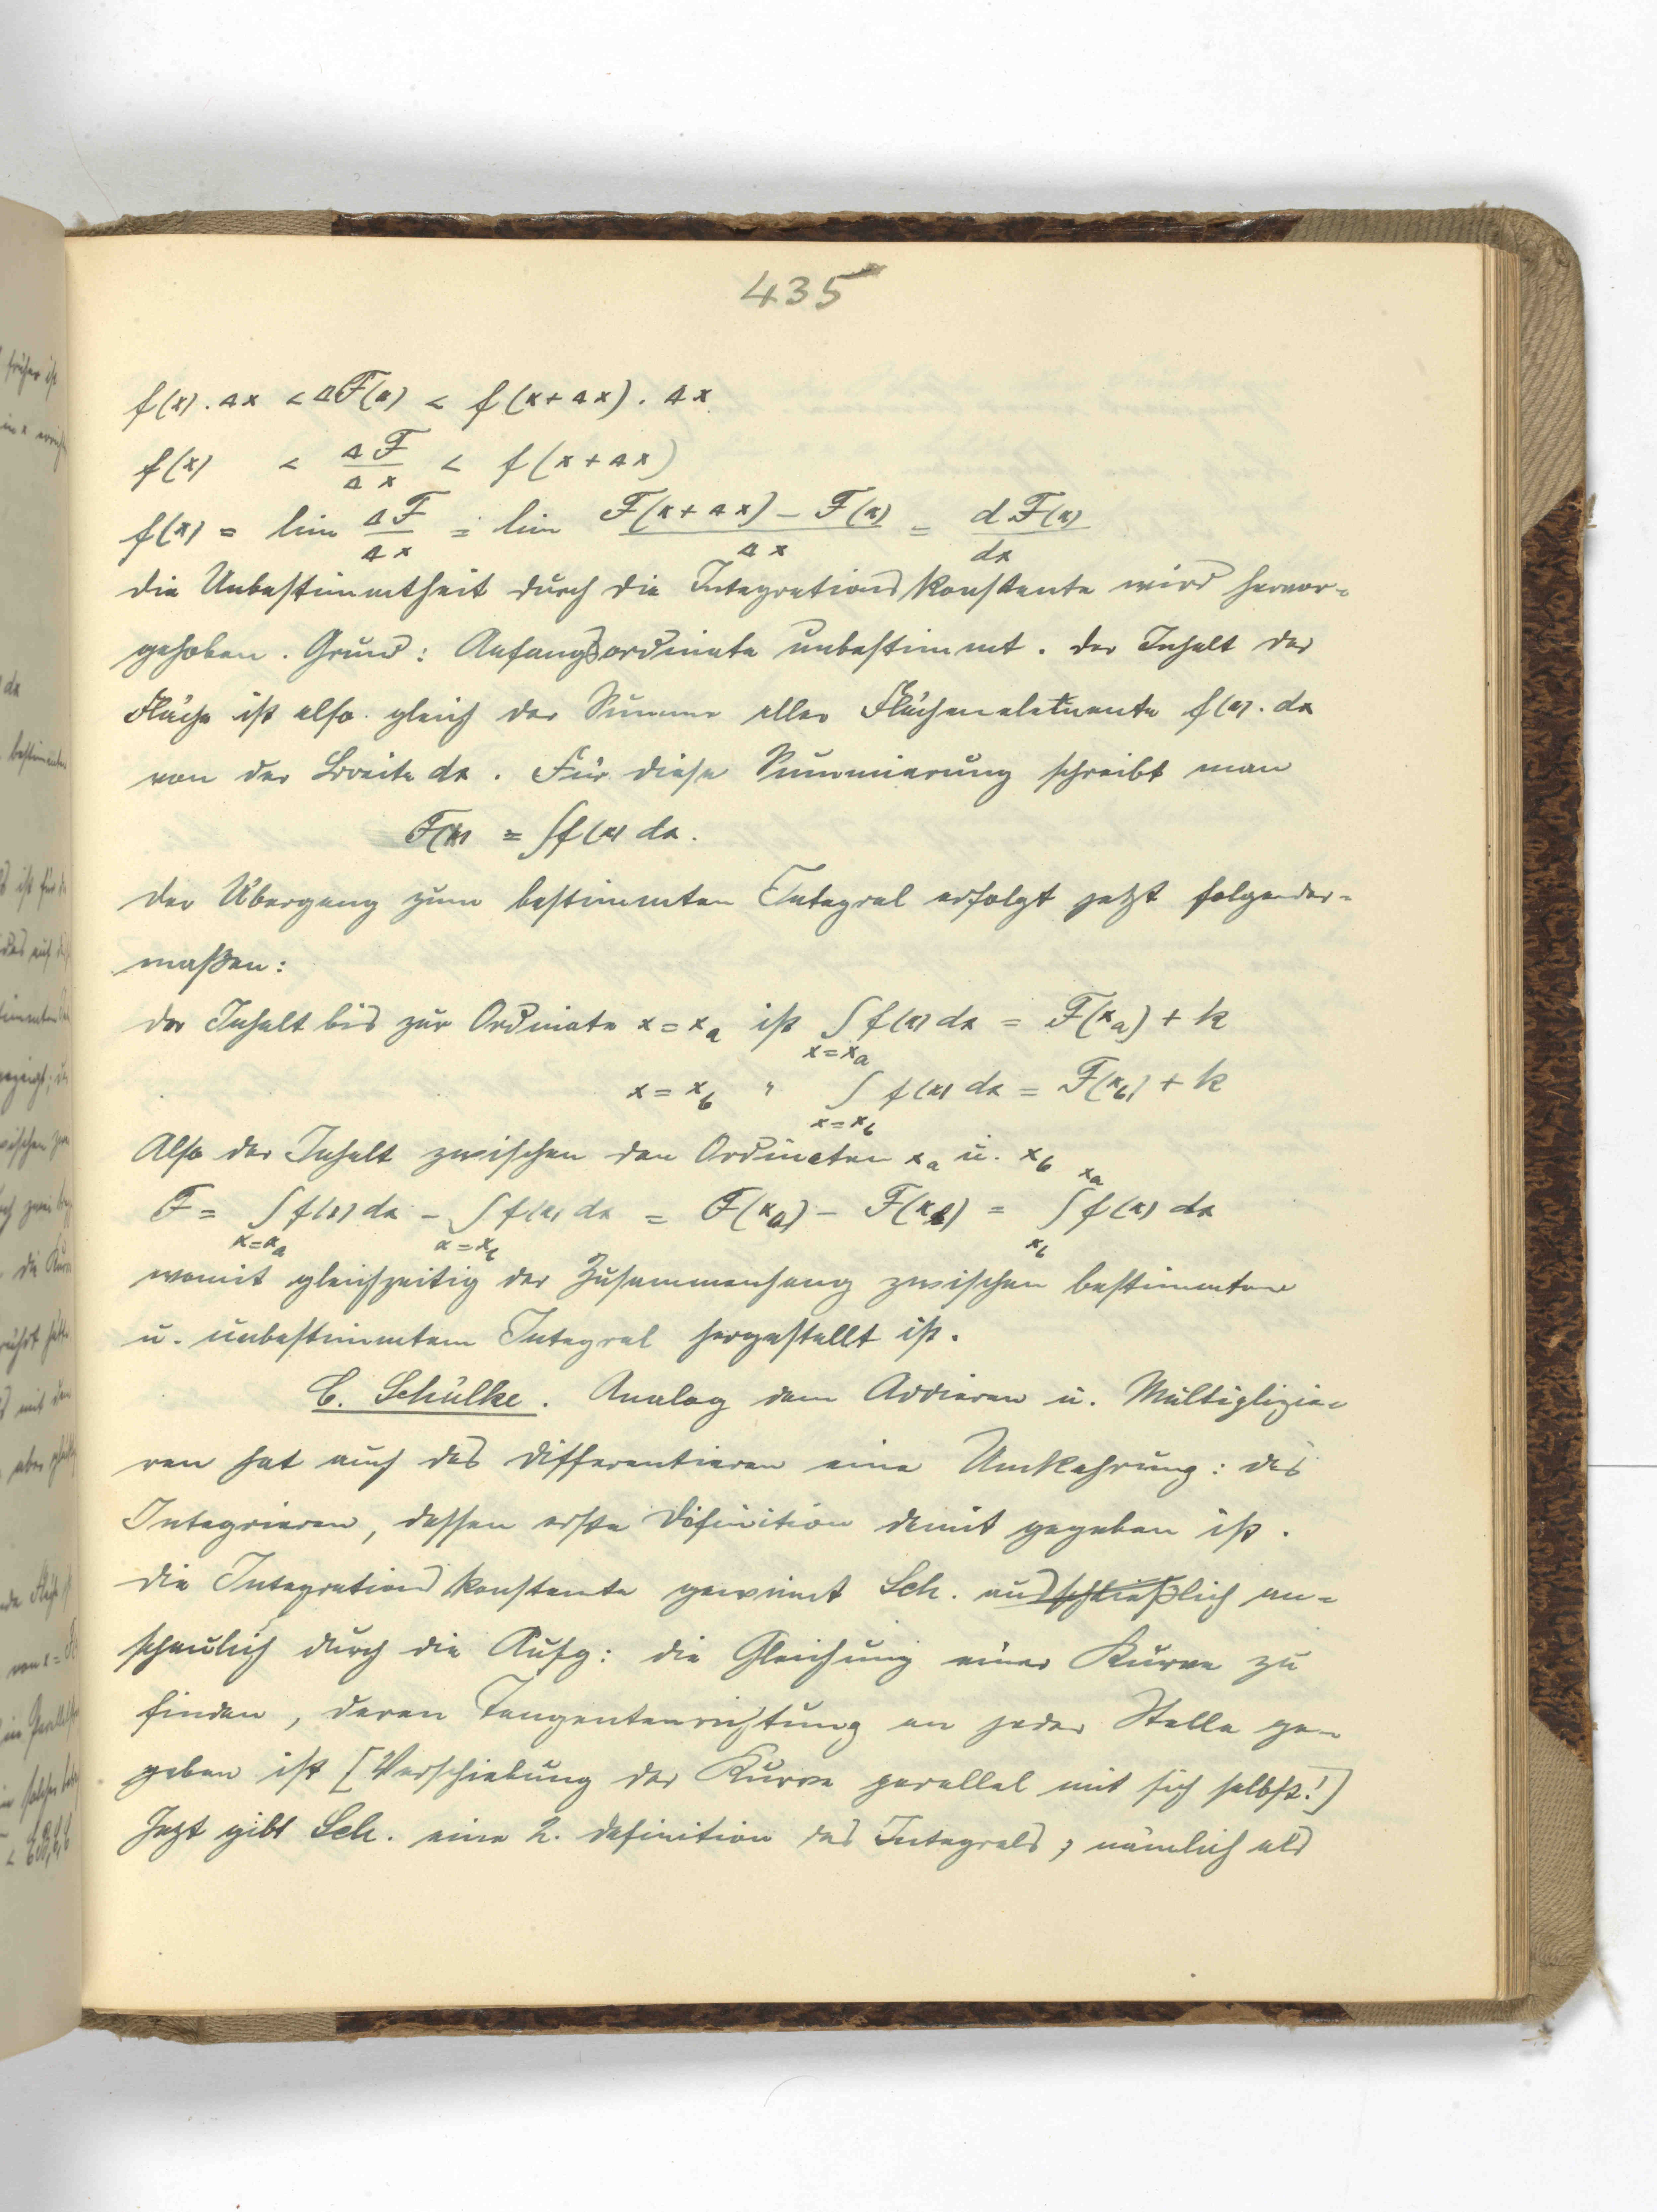 435
f(x) . Δx < ΔF(x) < f(x+Δx) . Δx
f(x) < ΔF/Δx < f(x+Δx)
f(x) = lim ΔF/Δx = lim F(x+Δx) – F(x)/Δx = dF(x)/dx
Die Unbestimmtheit durch die Integrationskonstante wird hervor-
gehoben. Grund: Anfangsordinate unbestimmt. Der Inhalt der
Fläche ist also gleich der Summe aller Flächenelemente f(x). dx
von der Breite dx. Für diese Summierung schreibt man
F(x) = ∫f(x) dx.
Der Übergang zum bestimmten Integral erfolgt jetzt folgender-
maßen:
Der Inhalt bis zur Ordinate x = x_a ist ∫_{x=x_a} f(x) dx = F(x_a) + k
x = x_b " ∫_{x=x_b} f(x) dx = F(x_b) + k
Also der Inhalt zwischen den Ordinaten x_a u. x_b
F = ∫_{x=x_a} f(x) dx – ∫_{x=x_b} f(x) dx = F(x_a) – F(x_b) = ∫_{x_b}^{x_a} f(x) dx
womit gleichzeitig der Zusammenhang zwischen bestimmtem
u. unbestimmtem Integral hergestellt ist.
C. Schülke. Analog dem Addieren u. Multiplizie-
ren hat auch das Differentieren eine Umkehrung: das
Integrieren, dessen erste Definition damit gegeben ist.
Die Integrationskonstante gewinnt Sch. ausschließlich an-
schaulich durch die Aufg: die Gleichung einer Kurve zu
finden, deren Tangentenrichtung an jeder Stelle ge-
geben ist [Verschiebung der Kurve parallel mit sich selbst!]
Jezt gibt Sch. eine 2. Definition des Integrals, nämlich als